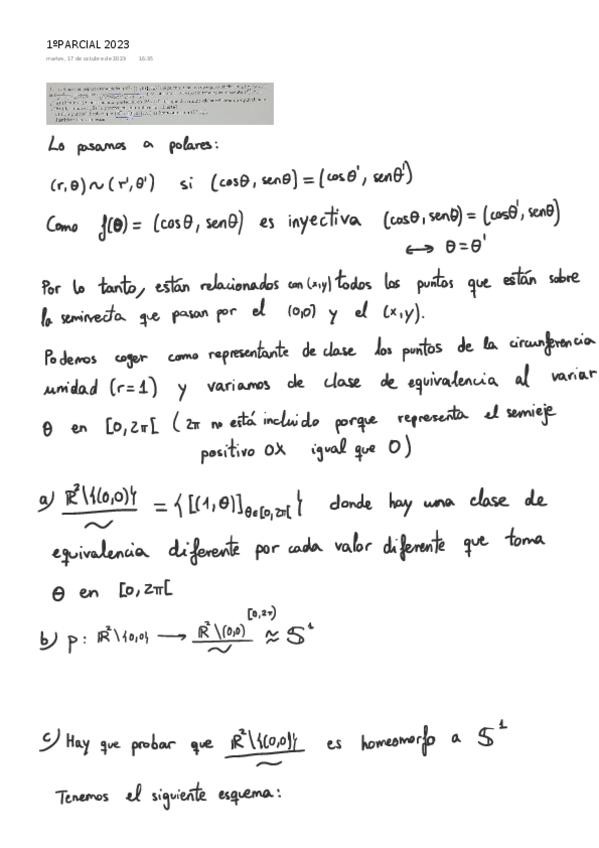 1ºPARCIAL 2023
martes, 17 de octubre de 2023 16:35
Lo pasamos a polares:
(r,θ)~(r',θ') si (cosθ, senθ) = (cosθ', senθ')
Como f(θ) = (cosθ, senθ) es inyectiva (cosθ, senθ) = (cosθ', senθ)
↔ θ = θ'
Por lo tanto, están relacionados con (x,y) todos los puntos que están sobre
la semirrecta que pasan por el (0,0) y el (x,y).
Podemos coger como representante de clase los puntos de la circunferencia
unidad (r=1) y variamos de clase de equivalencia al variar
θ en [0,2π[ (2π no está incluido porque representa el semieje
positivo OX igual que 0)
a) ℝ²\{(0,0)}/~ = {[(1,θ)]θ∈[0,2π[} donde hay una clase de
equivalencia diferente por cada valor diferente que toma
θ en [0,2π[
b) p: ℝ²\{0,0} → ℝ²\(0,0)/~ [0,2π) ≈ S¹
c) Hay que probar que ℝ²\{(0,0)}/~ es homeomorfo a S¹
Tenemos el siguiente esquema: